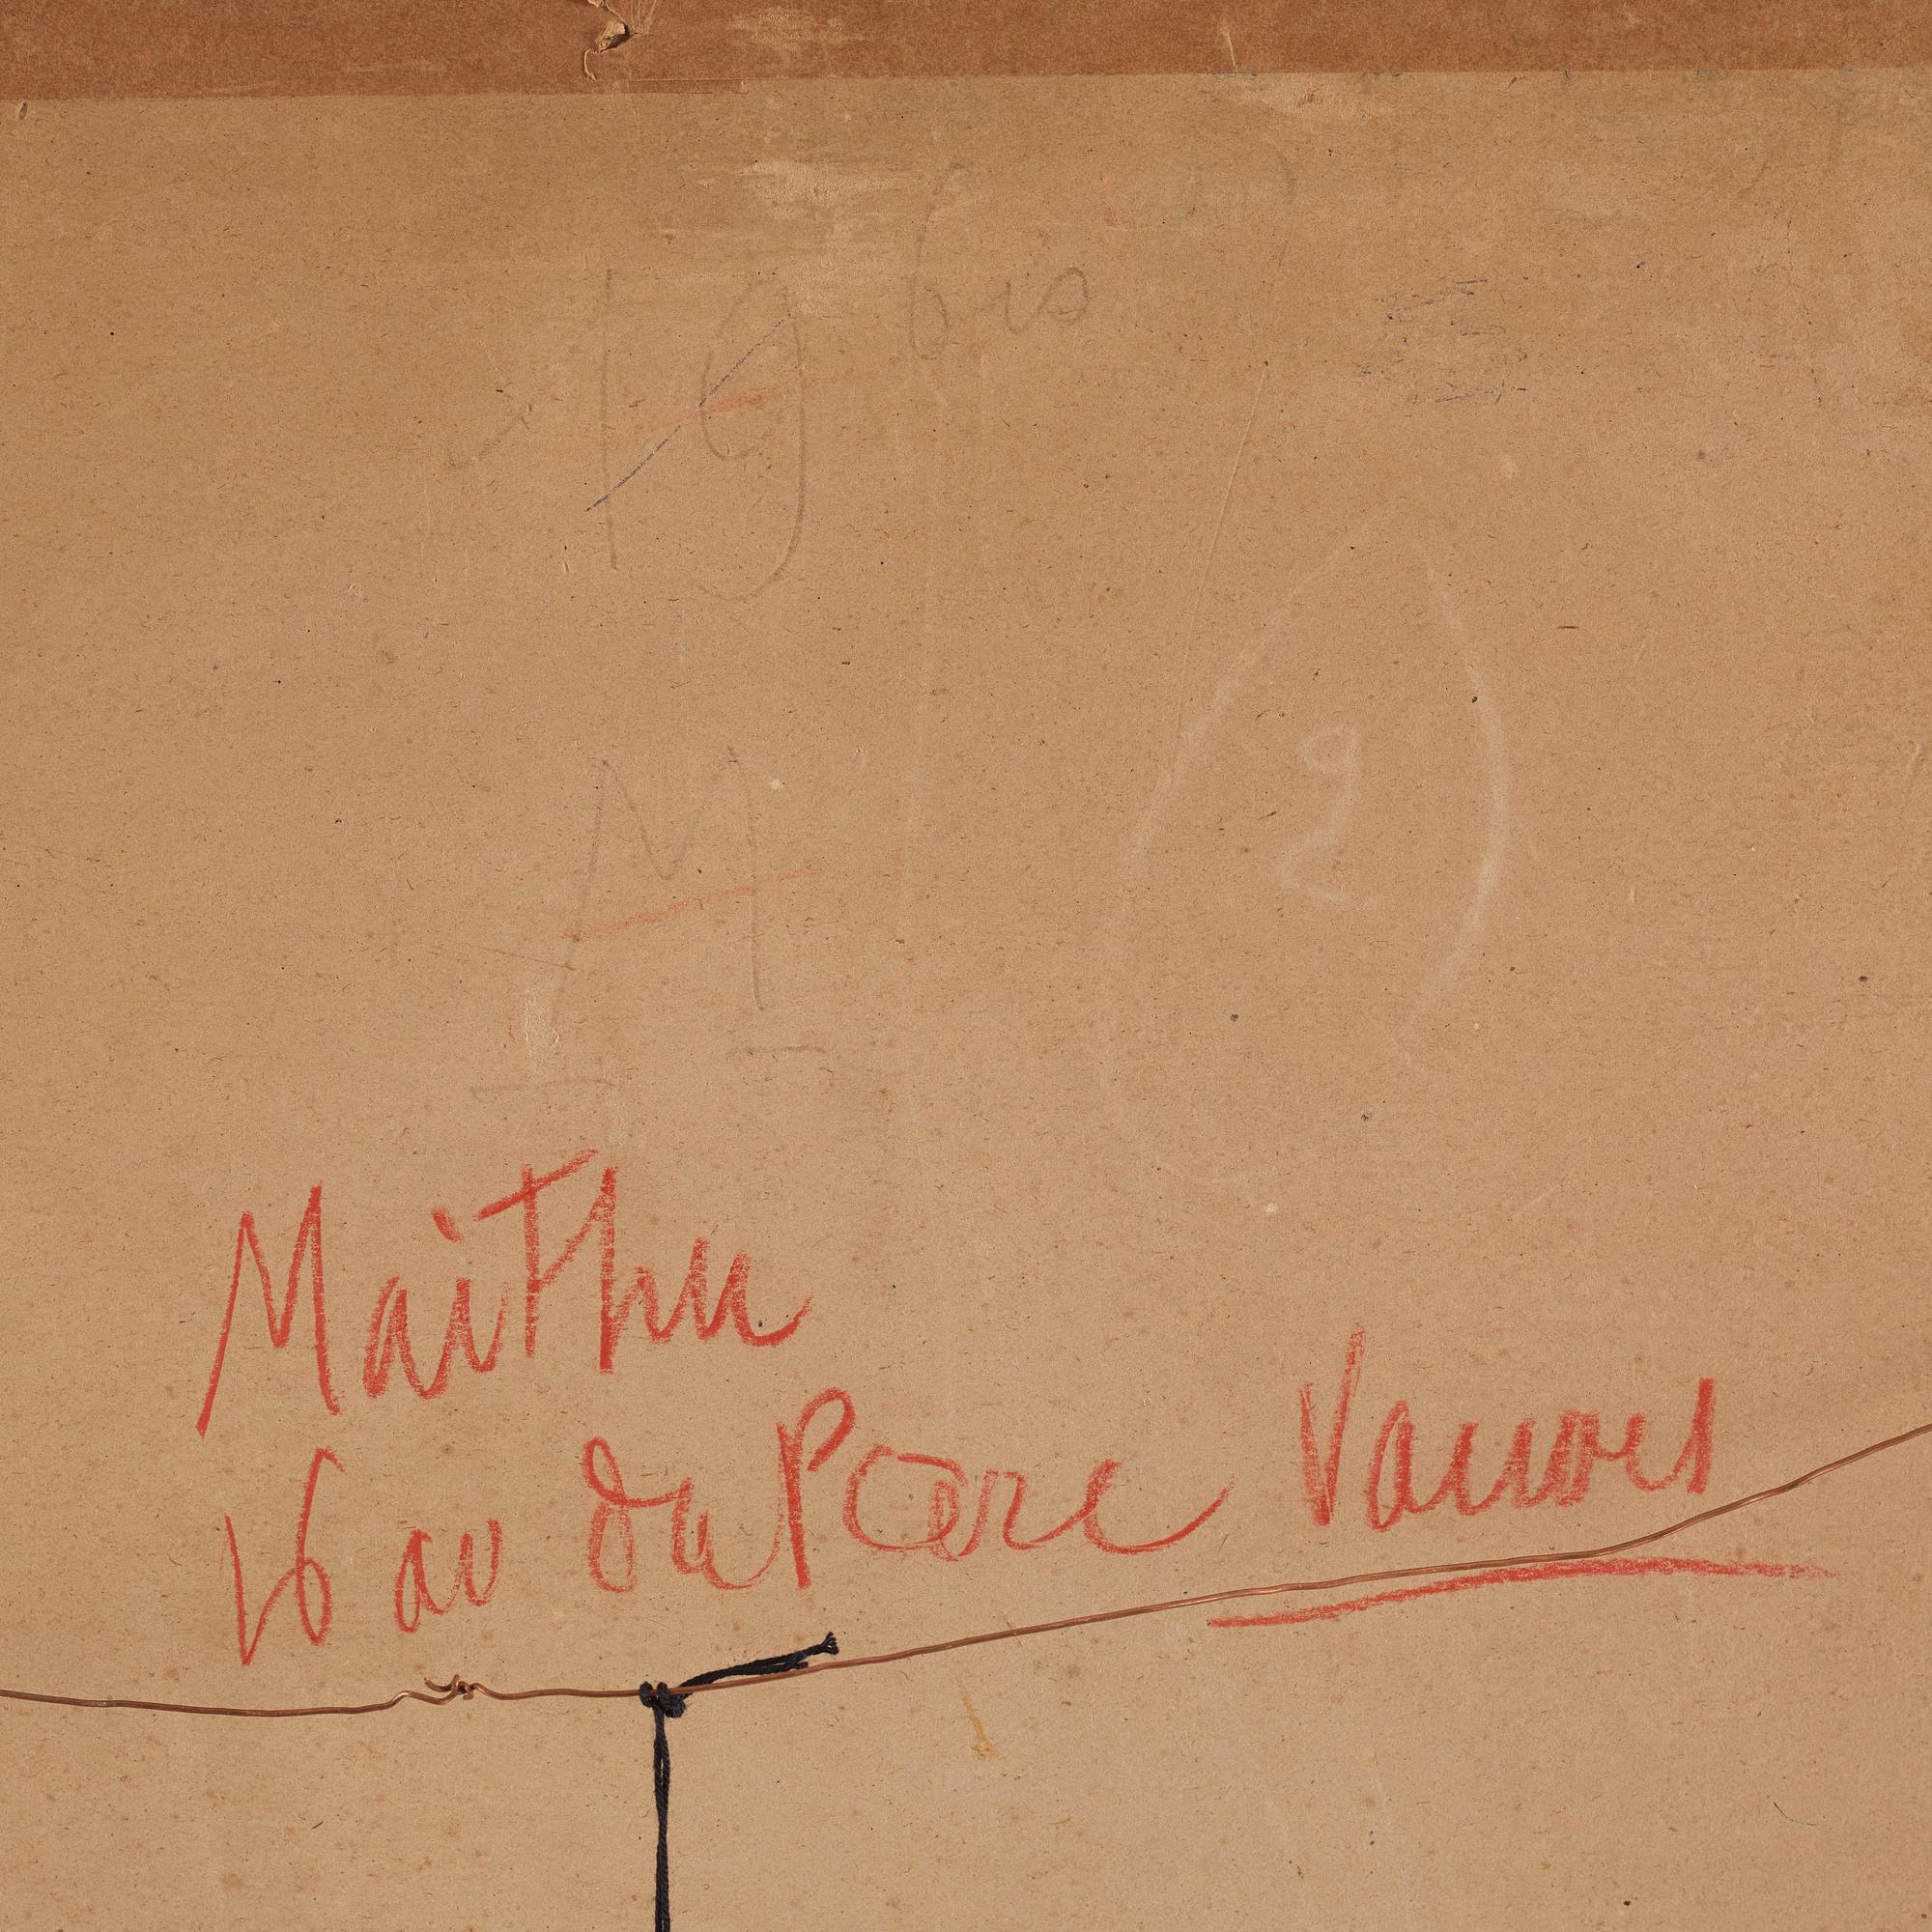 19 bis
M
2
MaiThu
16 av du Parc Vanves